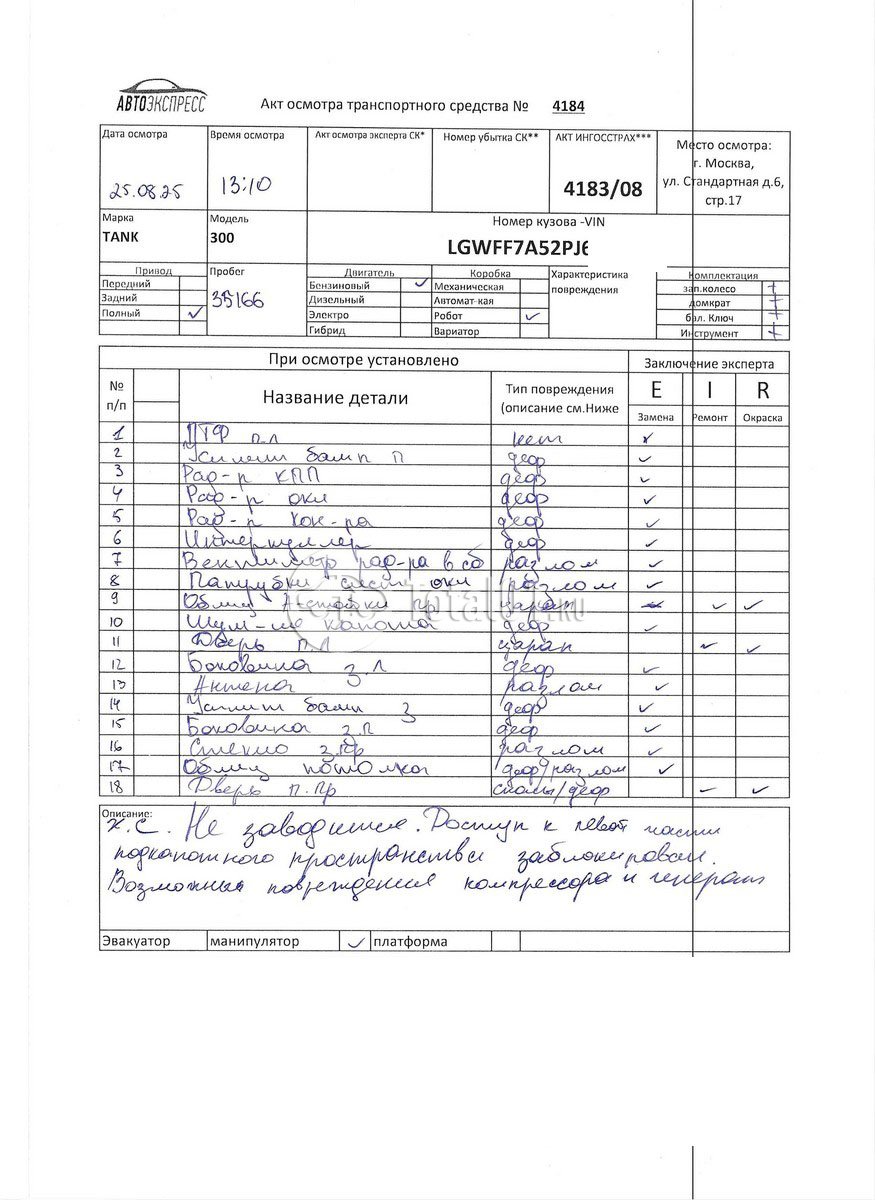 АВТОЭКСПРЕСС
Акт осмотра транспортного средства № 4184
Дата осмотра Время осмотра Акт осмотра эксперта СК* Номер убытка СК** АКТ ИНГОССТРАХ*** Место осмотра:
г. Москва,
25.08.25 13:10 4183/08 ул. Стандартная д.6,
стр.17
Марка Модель Номер кузова -VIN
TANK 300 LGWFF7A52PJ6
Привод Пробег Двигатель Коробка Характеристика Комплектация
Передний Бензиновый ✓ Механическая повреждения зап.колесо +
Задний 35166 Дизельный Автомат-кая домкрат +
Полный ✓ Электро Робот ✓ бал. Ключ +
Гибрид Вариатор Инструмент +
При осмотре установлено Заключение эксперта
№ п/п Название детали Тип повреждения (описание см.Ниже E I R
Замена Ремонт Окраска
1 ПТФ п л нет ✓
2 Усилит бамп П деф ✓
3 Рад-р КПП деф ✓
4 Рад-р охл деф ✓
5 Рад-р Кон-ра деф ✓
6 Интеркуллер деф ✓
7 рад-ра в сб разлом ✓
8 Патрубки сист охл разлом ✓
9 Облиц пр царап ✓ ✓
10 Шум-ие капота деф ✓
11 Дверь П Л царап ✓ ✓
12 Боковина З Л деф ✓
13 Антена разлом ✓
14 Усилит бамп З деф ✓
15 Боковина з.П деф ✓
16 Стекло з.Пр разлом ✓
17 Облиц потолка деф/разлом ✓
18 Дверь п.Пр сколы/деф ✓ ✓
Описание:
Х.С. Не заводится. Доступ к левой части
подкапотного пространства заблокирован.
Возможны повреждения компрессора и
Эвакуатор манипулятор ✓ платформа
Total01.ru